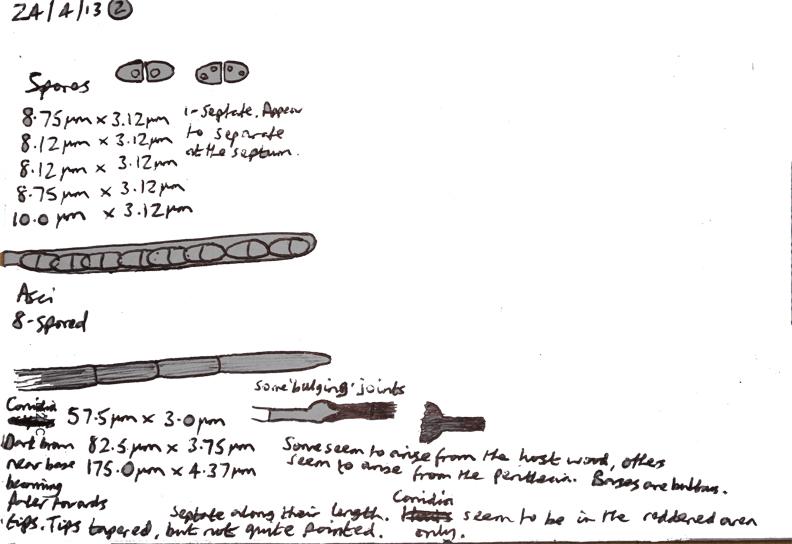 24/4/13 2
Spores
8.75 µm x 3.12 µm
8.12 µm x 3.12 µm
8.12 µm x 3.12 µm
8.75 µm x 3.12 µm
10.0 µm x 3.12 µm
1-Septate. Appear
to separate
at the septum.
Asci
8-spored
some 'bulging' joints
Conidia 57.5 µm x 3.0 µm
Dark brown 82.5 µm x 3.75 µm
near base 175.0 µm x 4.37 µm
becoming
Paler towards
tips. Tips tapered, but not quite pointed.
Septate along their length.
Some seem to arise from the host wood, others
seem to arise from the perithecia. Bases are bulbous.
Conidia seem to be in the reddened area
only.